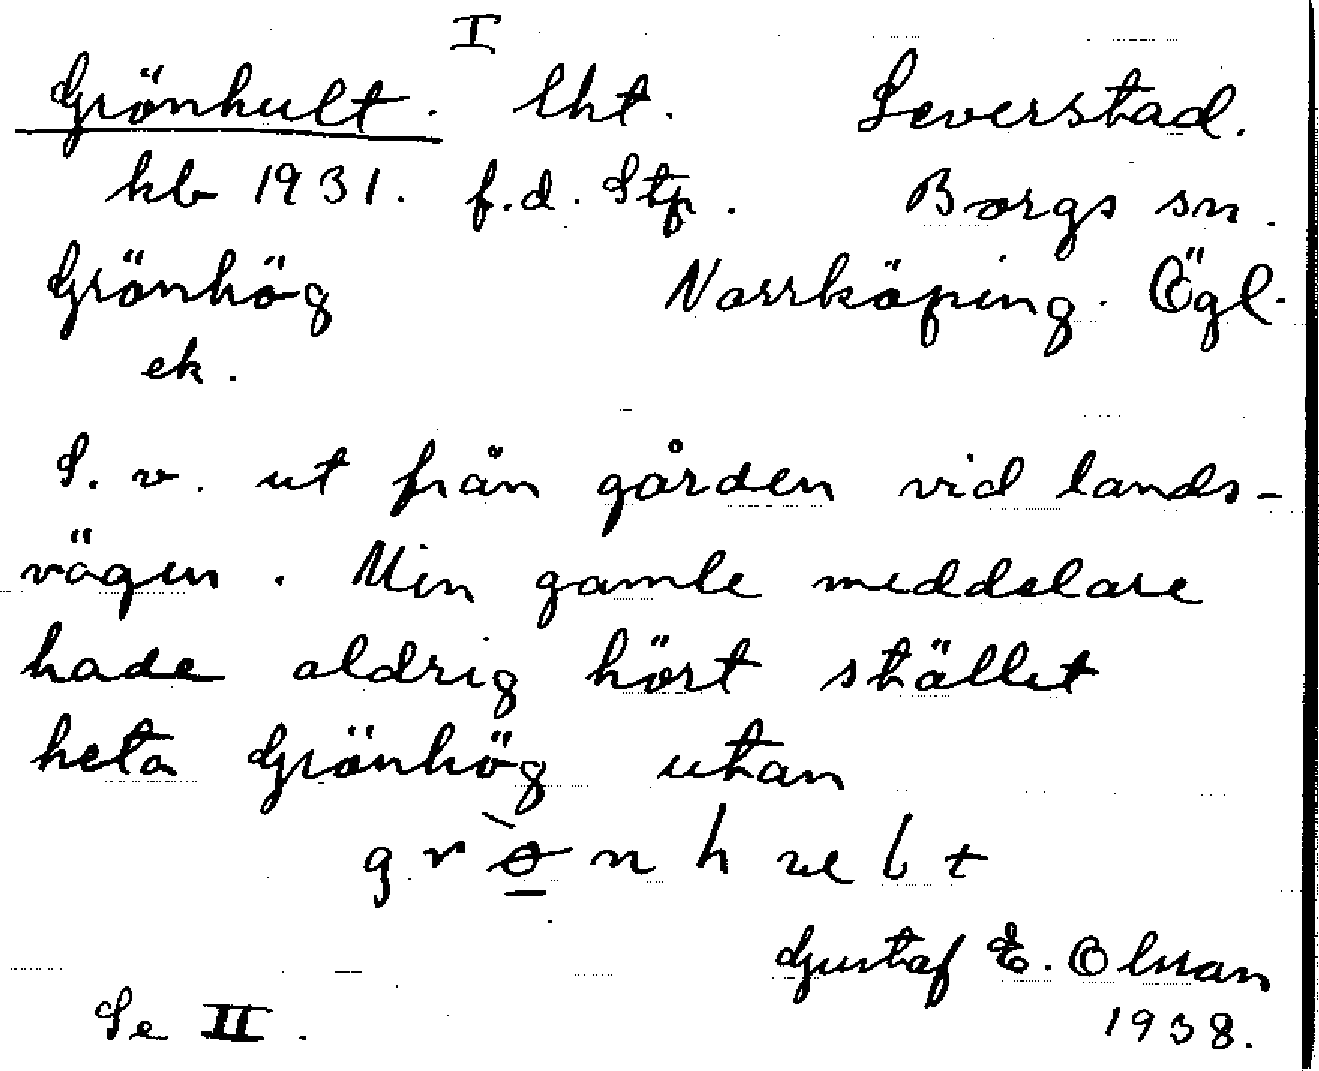 I
Grönhult. lht. Leverstad.
kb 1931. f.d. Stp. Borgs sn.
Grönhög Norrköping. Ögl.
ek.
S. v. ut från gården vid lands-
vägen. Min gamle meddelare
hade aldrig hört stället
heta Grönhög utan
Gustaf E. Olsson
Se II. 1938.